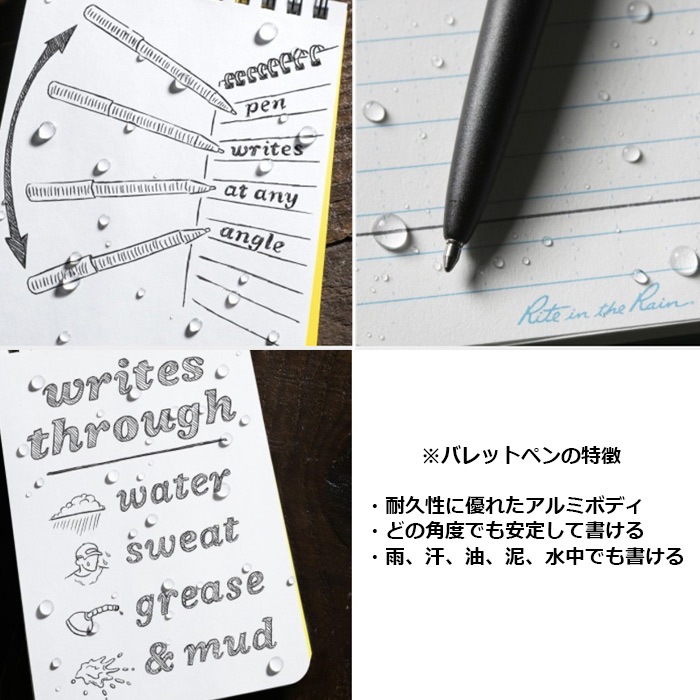 pen
writes
at any
angle
Rite in the Rain
writes
through
water
sweat
grease
& mud
※バレットペンの特徴
・耐久性に優れたアルミボディ
・どの角度でも安定して書ける
・雨、汗、油、泥、水中でも書ける